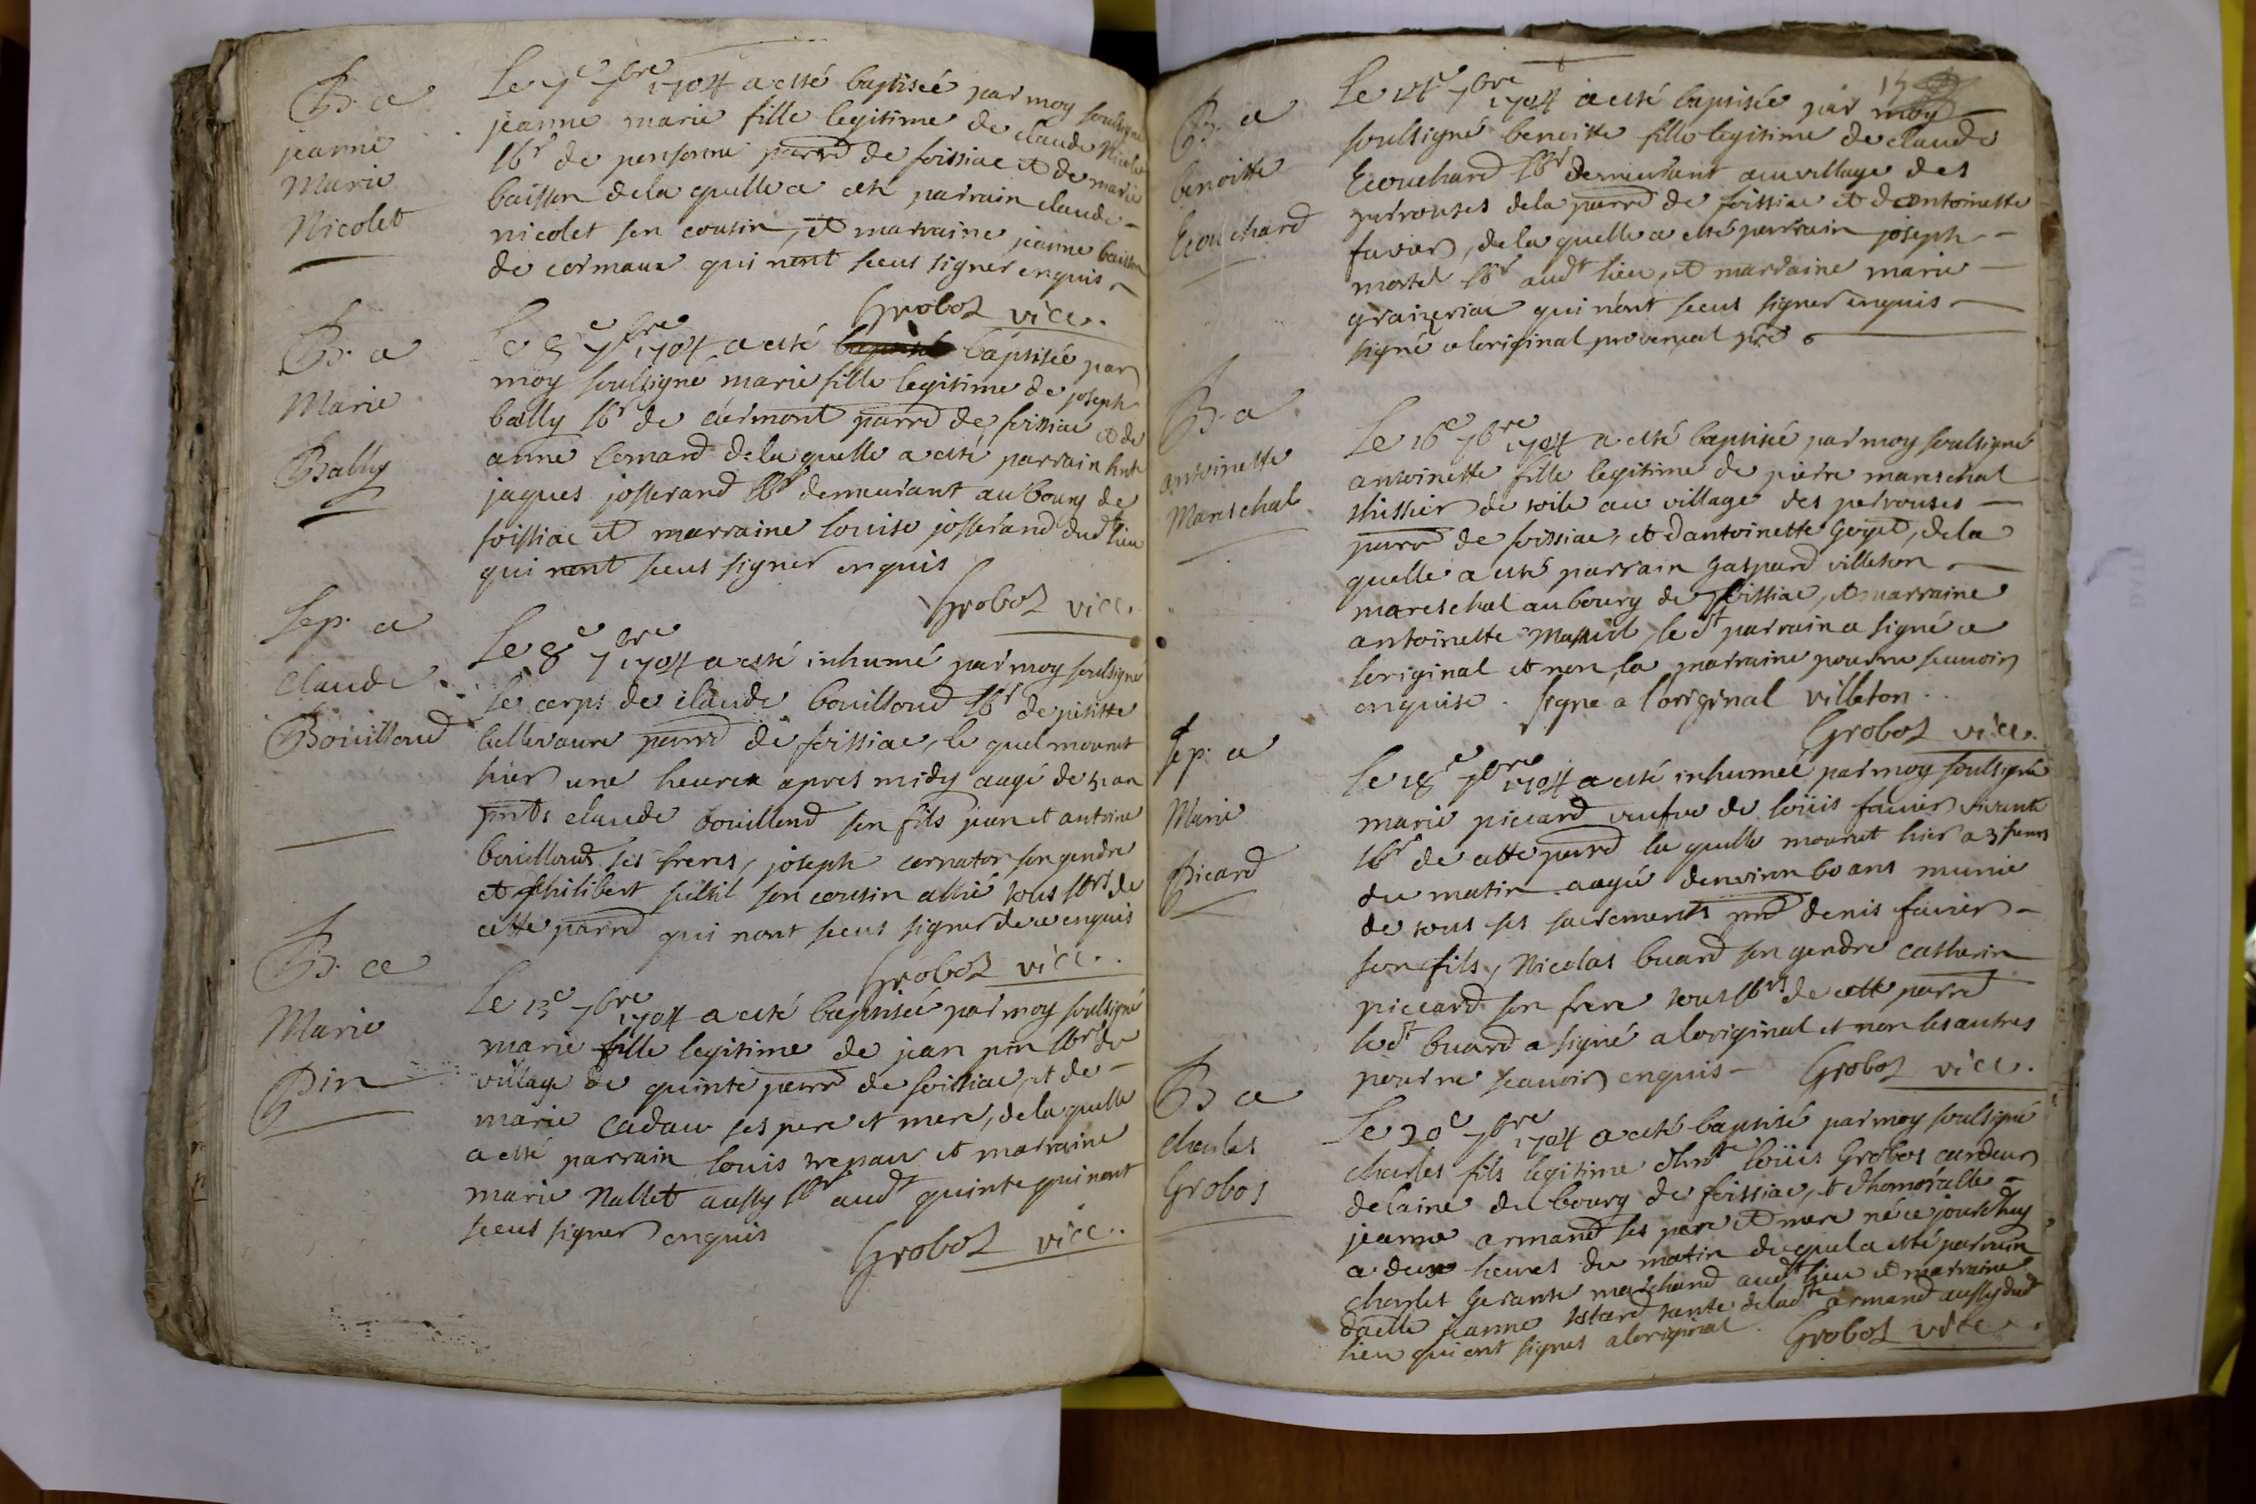 B. a
jeanne
Marie
Nicolet
Le 7e 7bre 1704 a esté baptisée par moy soulsigné
jeanne marie fille legitime de claude Nicolet
lbr de personne parrd de foissiac et de marie
baisson de la quelle a esté parrain claude
nicolet son cousin, et marraine jeanne baisson
de cormaux qui nont sceus signer enquis
Grobos vice.
B. a
Marie
Bally
Le 8e 7bre 1704 a esté baptisée par
moy soulsigné marie fille legitime de joseph
bally lbr de cormont parrd de foissiac et de
anne de la quelle a esté parrain hnte
jaques josserand lbr demeurant au bourg de
foissiac et marraine louise josserand dud lieu
qui nont sceus signer enquis
Grobos vice.
Sep. a
Claude
Bouilloud
Le 8e 7bre 1704 a esté inhumé par moy soulsigné
le corps de claude bouilloud lbr de petitte
bellevaure parrd de foissiac, le quel mourut
hier une heure apres midy aagé de an
pnts claude bouilloud son fils jean et antoine
bouilloud ses freres, joseph cornaton son gendre
et philibert son cousin allié tous lbrs de
cette parrd qui nont sceus signer de ce enquis
Grobos vice.
B. a
Marie
Pin
Le 13e 7bre 1704 a esté baptisée par moy soulsigné
marie fille legitime de jean pin lbr du
village de quinte parrd de foissiac, et de
marie cadaw ses pere et mere, de la quelle
a esté parrain louis et marraine
marie Nallet aussy lbr audt quinte qui nont
sceus signer enquis
Grobos vice.
B. a
benoitte
Ecouchard
Le 14e 7bre 1704 a esté baptisée par moy
soulsigné benoitte fille legitime de claude
Ecouchard lbr demeurant au village des
perrouses de la parrd de foissiac et d antoinette
favier, de la quelle a esté parrain joseph
mortel lbr audt lieu, et marraine marie
qui nont sceus signer enquis
signé a loriginal provencal pre
B. a
antoinette
Mareschal
Le 16e 7bre 1704 a esté baptisée par moy soulsigné
antoinette fille legitime de pierre mareschal
thissier de toile au village des perrouses
parrd de foissiac, et d antoinette goyet, de la
quelle a esté parrain gaspard villeton
mareschal au bourg de foissiac, et marraine
antoinette le dt parrain a signé a
loriginal et non la marraine pour ne scauoir
enquise. signé a l original villeton.
Grobos vice.
Sep. a
Marie
Picard
Le 18e 7bre 1704 a esté inhumée par moy soulsigné
marie piccard veufve de loüis favier vivant
lbr de cette parrd la quelle mourut hier a 3 heures
du matin aagée denviron 60 ans munie
de tous ses sacrements pnts denis favier
son fils, Nicolas buard son gendre catherin
piccard son frere tous lbrs de cette parrd
le dt buard a signé a loriginal et non les autres
pour ne scauoir enquis Grobos vice.
B a
charles
Grobos
Le 20e 7bre 1704 a esté baptisé par moy soulsigné
charles fils legitime d hnte loüis Grobos cardeur
de laine du bourg de foissiac, et dhonorable
jeanne armand ses pere et mere né ce jourdhuy
a deux heures du matin duquel a esté parrain
charles marchand audt lieu et marraine
delle jeanne tante de ladte armand aussy dud
lieu qui ont signés a loriginal. Grobos vice.